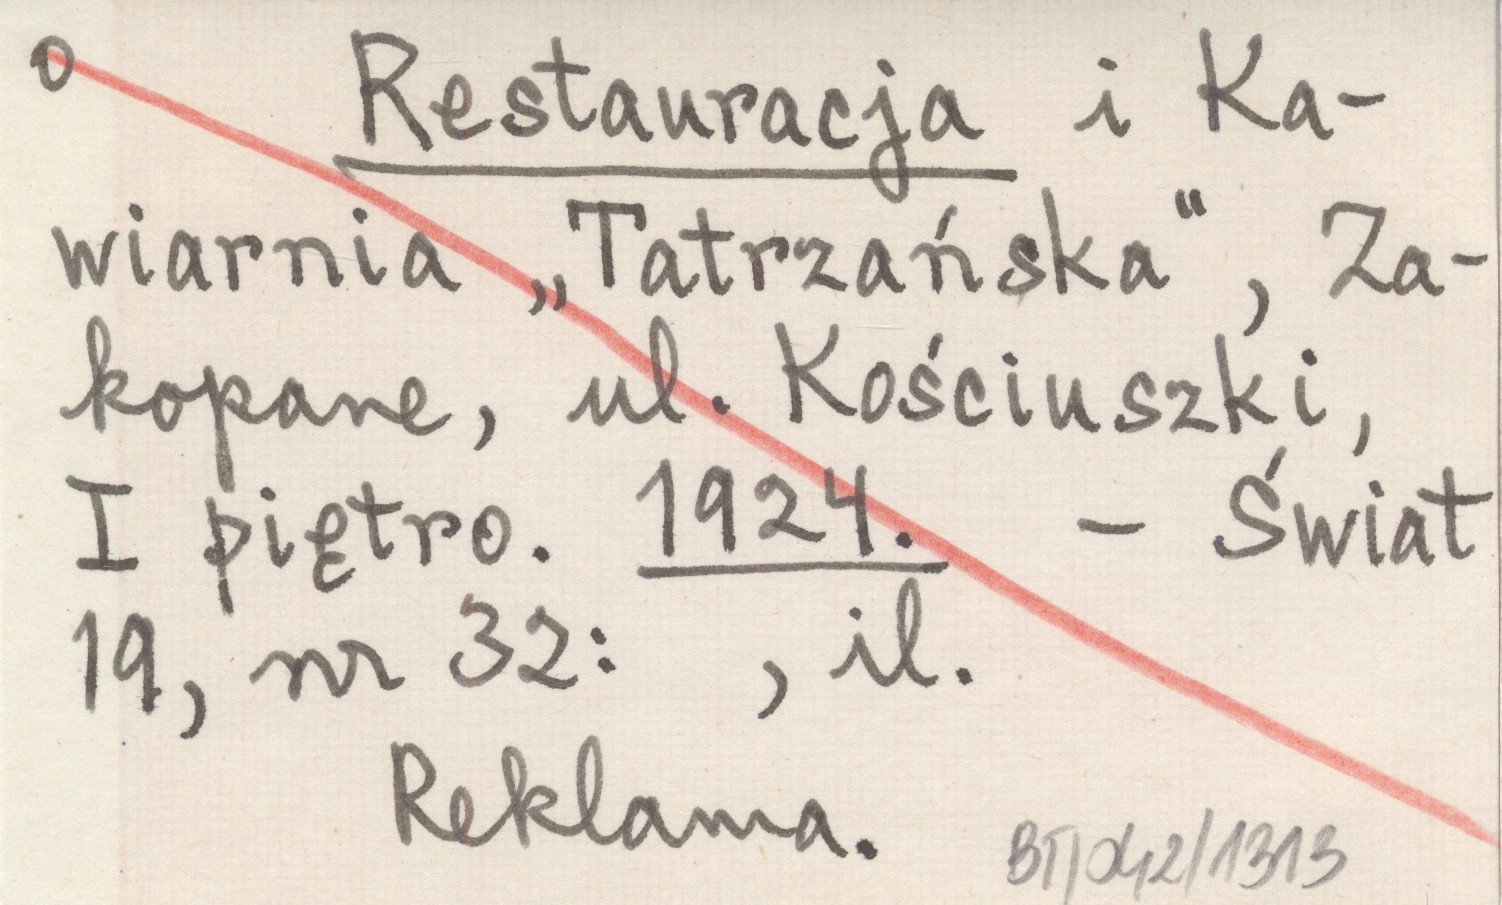 o Restauracja i Ka-
wiarnia „Tatrzańska“, Za-
kopane, ul. Kościuszki,
I piętro. 1924. - Świat
19, nr 32: , il.
Reklama.
BT/042/1313